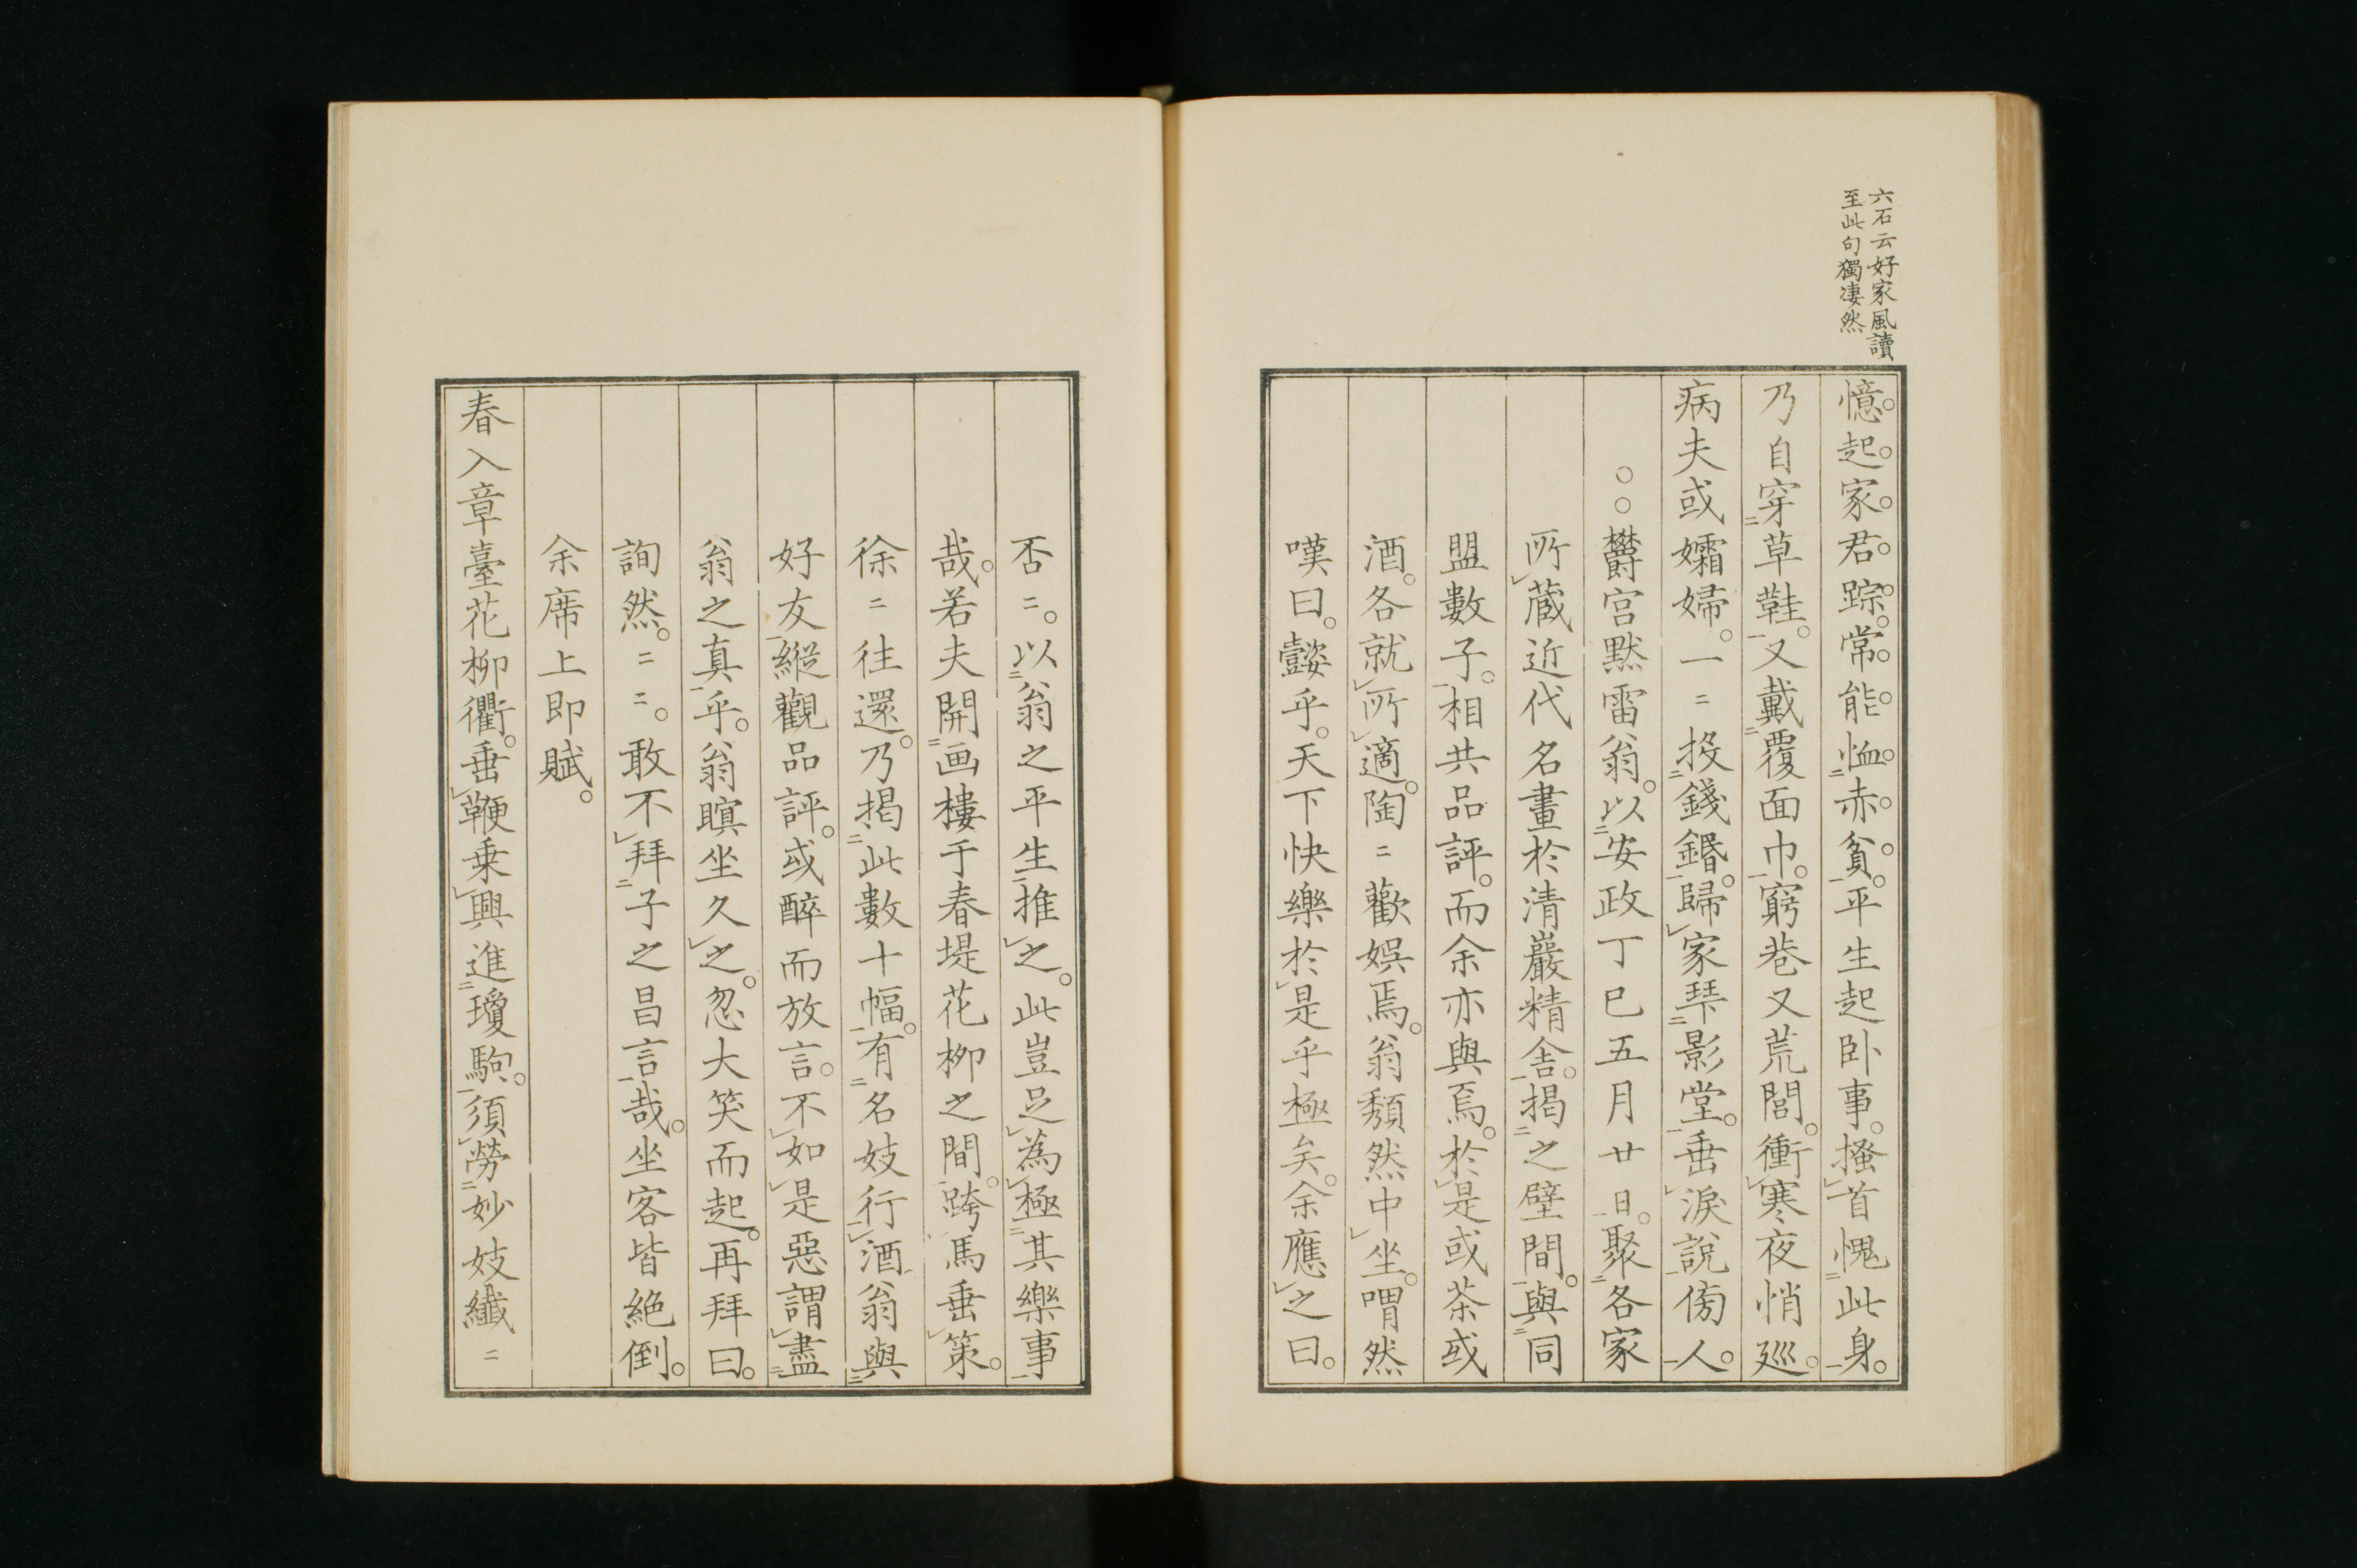 六石云好家風讀
至此句獨凄然
憶起家君踪常能恤赤貧。平生起臥事。搔首愧此身。
乃自穿草鞋。又戴覆面巾。窮巷又荒閭。衝寒夜悄巡。
病夫或孀婦。一〻投錢鏹。歸家琴影堂。垂淚說傍人。
○○欝宮默雷翁。以安政丁巳五月廿日。聚各家
所蔵近代名畫於清巖精舎。揭之壁間。與同
盟數子。相共品評。而余亦與焉。於是或茶或
酒。各就所適。陶〻歡娯焉。翁頽然中坐。喟然
嘆曰。懿乎。天下快樂於是乎極矣。余應之曰。
否〻。以翁之平生推之。此豈足為極其樂事
哉。若夫開画樓于春堤花柳之間。跨馬垂策。
徐〻往還。乃揭此數十幅。有名妓行酒。翁與
好友縱觀品評。或醉而放言。不如是惡謂盡
翁之真乎。翁瞑坐久之。忽大笑而起。再拜曰。
詢然。〻〻。敢不拜子之昌言哉。坐客皆絶倒。
余席上即賦。
春入章臺花柳衢。垂鞭乗興進瓊駒。須勞妙妓纖〻